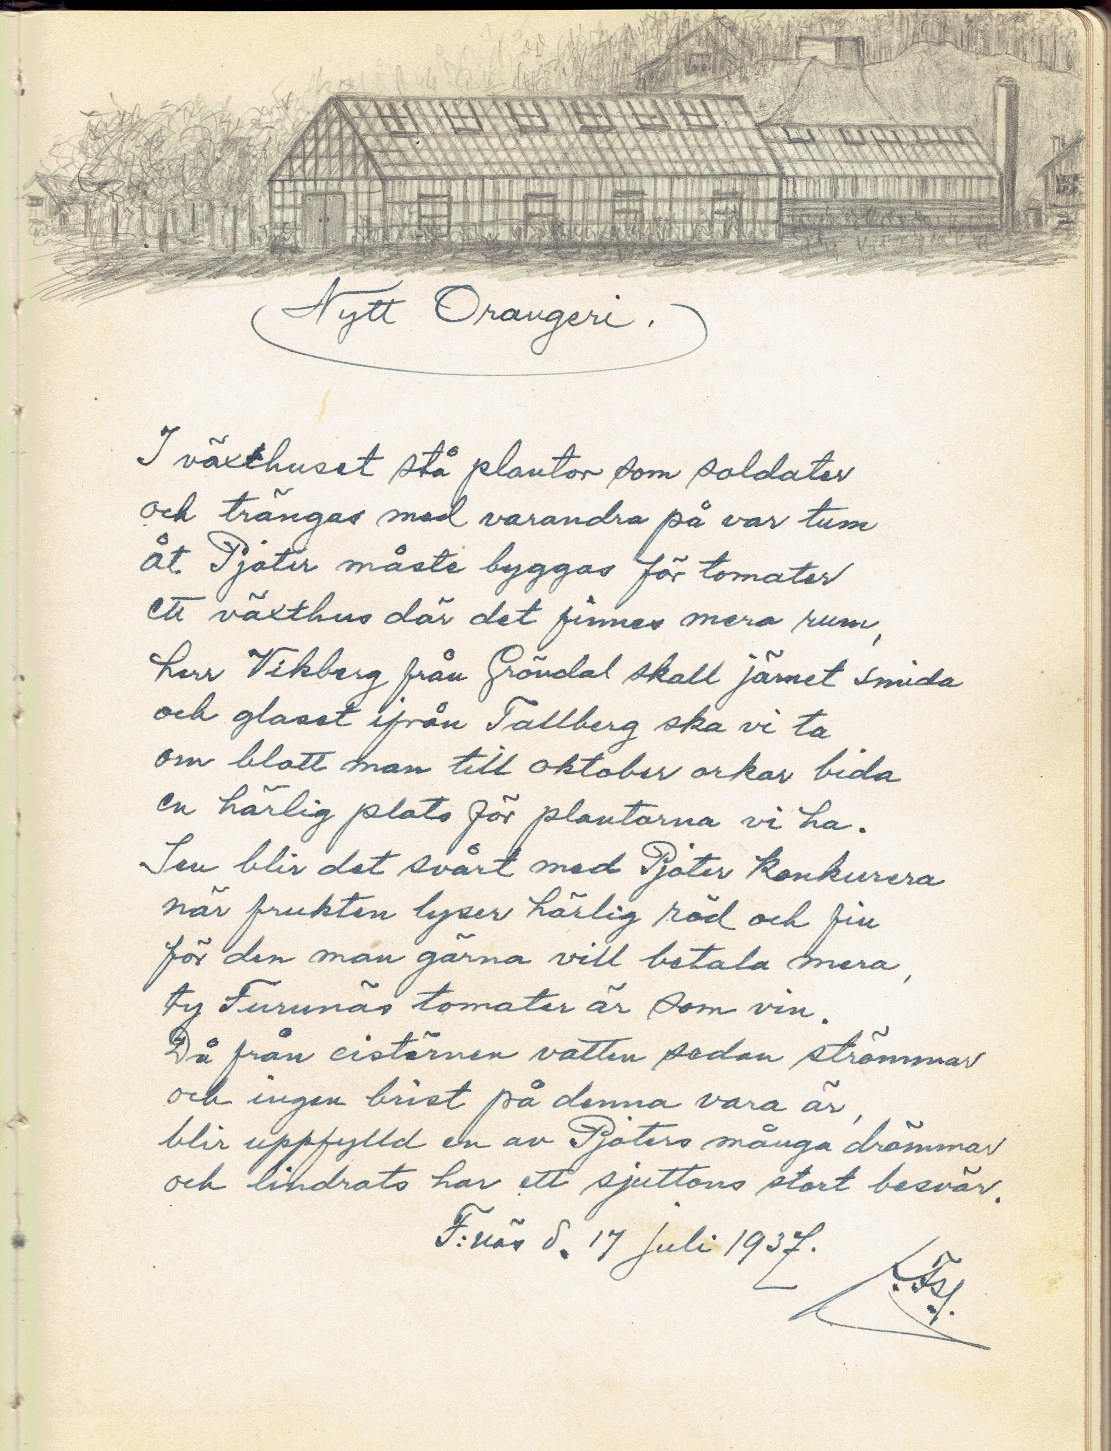 Nytt Orangeri.
I växthuset stå plantor som soldater
och trängas med varandra på var tum
åt Pjoter måste byggas för tomater
ett växthus där det finnes mera rum,
herr Vikberg från Gröndal skall järnet smida
och glaset ifrån Tallberg ska vi ta
om blott man till oktober orkar bida
en härlig plats för plantorna vi ha.
Sen blir det svårt med Pjoter konkurera
när frukten lyser härlig röd och fin
för den man gärna vill betala mera,
ty Furunäs tomater är som vin.
Då från cistärnen vatten sedan strömmar
och ingen brist på denna vara är,
blir uppfylld en av Pjoters många drömmar
och lindrats har ett sjuttons stort besvär.
F:näs d. 17 juli 1937.